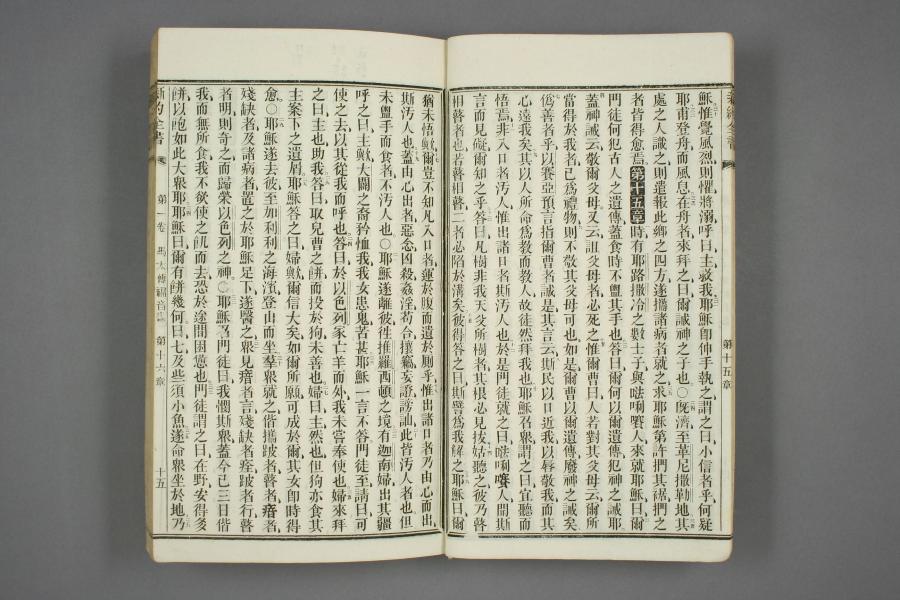 新約全書
第十五章
穌惟覺風烈則懼將溺呼曰主救我耶穌卽伸手執之謂之曰小信者乎何疑
耶甫登舟而風息在舟者來拜之曰爾誠神之子也○旣濟至革尼撒勒地其
處之人識之則遣報此鄉之四方遂攜諸病者就之求耶穌第許捫其裾捫之
者皆得愈焉第十五章時有耶路撒冷之數士子與𠵽唎㘔人來就耶穌曰爾
門徒何犯古人之遺傳蓋食時不盥其手也答曰爾何以爾遺傳犯神之誡耶
蓋神誡云敬爾父母又云詛父母者必死之惟爾曹曰人若對其父母云爾所
當得於我者已爲禮物則不敬其父母可也如是爾曹以爾遺傳廢神之誡矣
僞善者乎以賽亞預言指爾曹者誠是其言云斯民以口近我以辱敬我而其
心遠我矣其以人所命爲教而教人故徒然拜我也耶穌召衆謂之曰宜聽而
悟焉非入口者汚人惟出諸口者斯汚人也於是門徒就之曰𠵽唎㘔人聞斯
言而見礙爾知之乎答曰凡樹非我天父所樹者其根必見拔姑聽之彼乃瞽
相瞽者也若瞽相瞽二者必陷於溝矣彼得答之曰斯譬爲我解之耶穌曰爾
猶未悟歟爾豈不知凡入口者運於腹而遺於厠乎惟出諸口者乃由心而出
斯汚人也蓋由心出者惡念凶殺姦淫苟合攘竊妄證謗訕此皆汚人者也但
未盥手而食者不汚人也○耶穌遂離彼徃推羅西頓之境有迦南婦出其疆
呼之曰主歟大闢之裔矜恤我我女患鬼苦甚耶穌一言不答門徒至請曰可
使之去以其從我而呼也答曰於以色列家亡羊而外我未嘗奉使也婦來拜
之曰主也助我答曰取兒曹之餅而投於狗未善也婦曰主然也但狗亦食其
主案下之遺屑耶穌答之曰婦歟爾信大矣如爾所願可成於爾其女卽時得
愈○耶穌遂去彼至加利利之海濱登山而坐羣衆就之偕攜跛者瞽者瘖者
殘缺者及諸病者置之於耶穌足下遂醫之衆見瘖者言殘缺者痊跛者行瞽
者明則奇之而歸榮以色列之神○耶穌召門徒曰我憫斯衆蓋今已三日偕
我而無所食我不欲使之飢而去恐於途間困憊也門徒謂之曰在野安得多
餅以飽如此大衆耶耶穌曰爾有餅幾何曰七及些須小魚遂命衆坐於地乃
新約全書
第一卷
馬太傳福音書
第十六章
十五